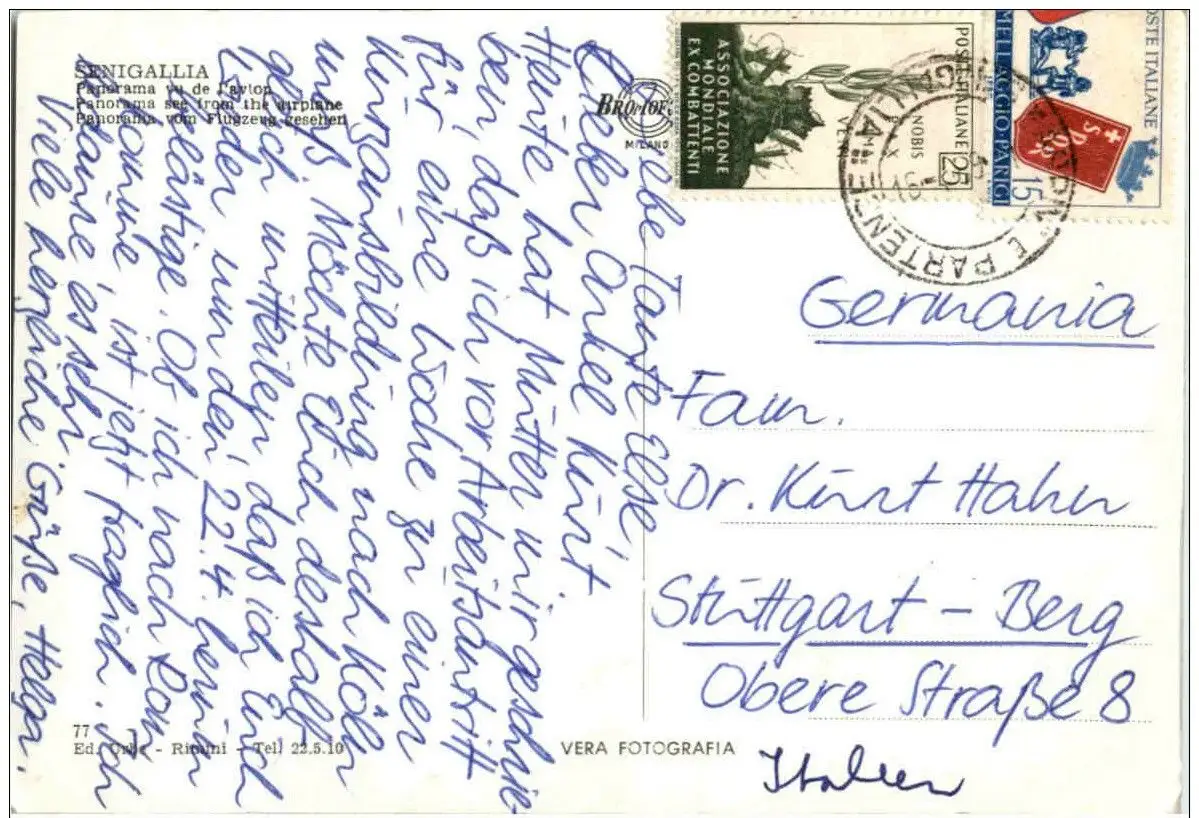 SENIGALLIA
Panorama vu de l'avion
Panorama see from the airplane
Panorama vom Flugzeug gesehen
BROMOFOT
MILANO
POSTE ITALIANE 25
ASSOCIAZIONE
MONDIALE
EX COMBATTENTI
VENI
NOBIS
POSTE ITALIANE
MELLAGGIO · PARIGI
15
E PARTENZE
Liebe Tante Else,
Lieber Onkel Kurt.
Heute hat Mutter mir geschrie-
ben, daß ich vor Arbeitsantritt
für eine Woche zu einer
Kurzausbildung nach Köln
muß. Möchte Euch deshalb
gleich mitteilen daß ich Euch
leider nun den 22.4. herum
belästige. Ob ich nach Rom
komme ist jetzt fraglich. Ich
bedaure es sehr.
Viele herzliche Grüße, Helga.
Germania
Fam.
Dr. Kurt Hahn
Stuttgart - Berg
Obere Straße 8
Italien
77
Ed. Urbe - Rimini - Tel. 22.5.10
VERA FOTOGRAFIA